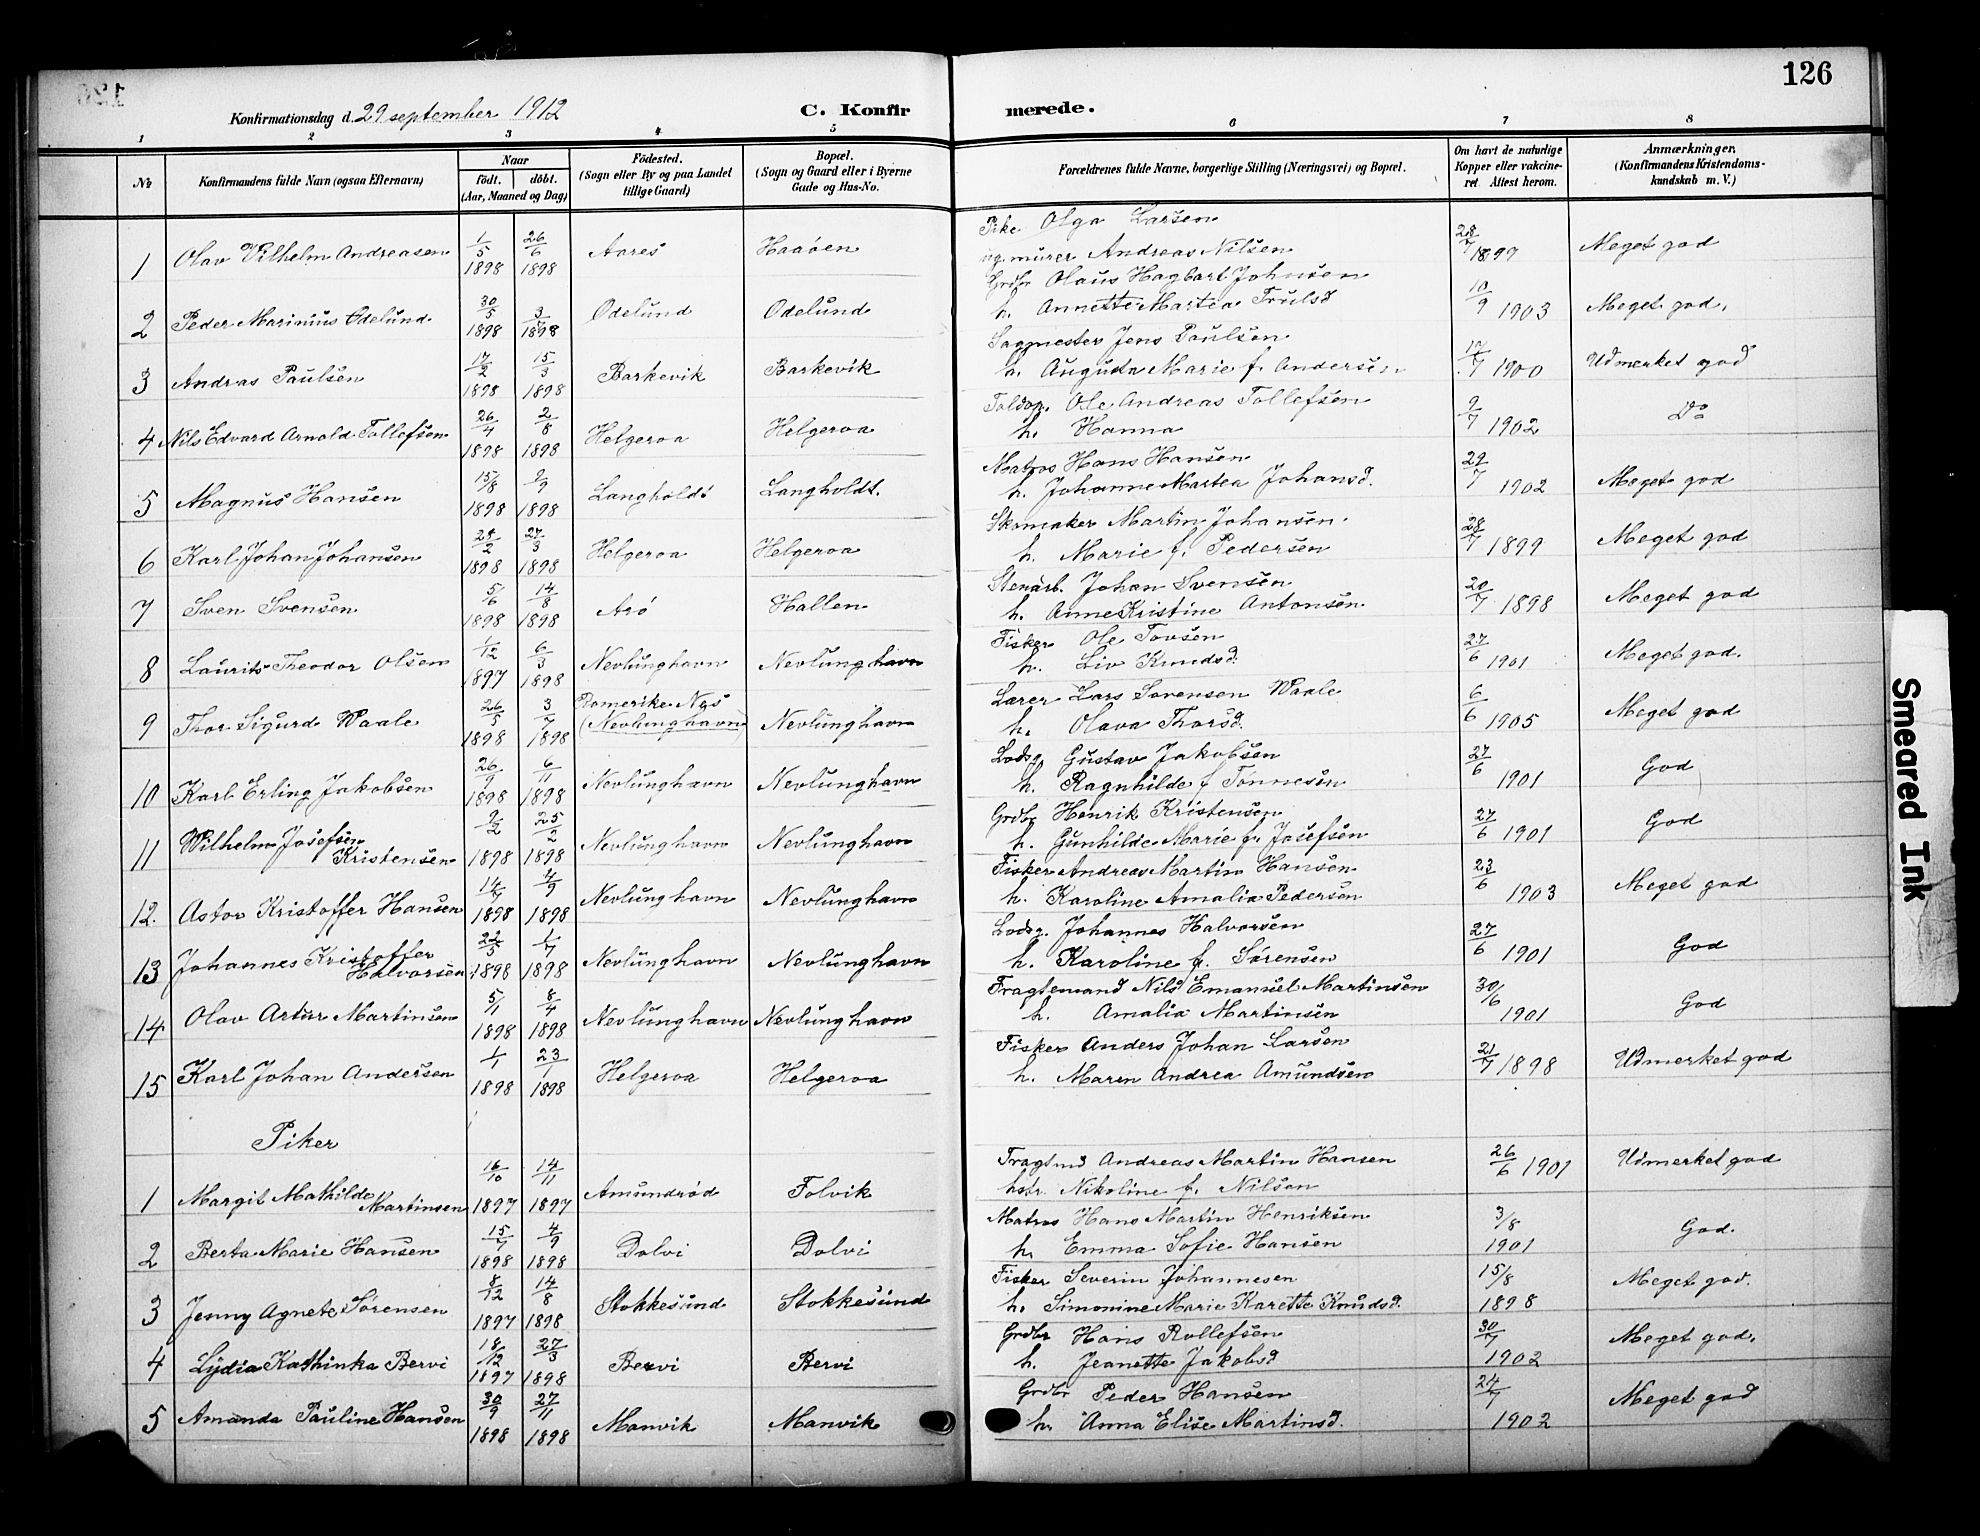 126
Konfirmationsdag d. 29 september 1912
C. Konfirmerede.
1 2 3 4 5 6 7 8
No.
Konfirmandens fulde Navn (ogsaa Efternavn)
Naar
født. døbt.
(Aar, Maaned og Dag)
Fødested.
(Sogn eller By og paa Landet
tillige Gaard)
Bopæl.
(Sogn og Gaard eller i Byerne
Gade og Hus-No.
Forældrenes fulde Navne, borgerlige Stilling (Næringsvei) og Bopæl.
Om havt de naturlige
Kopper eller vakcine-
ret. Attest herom.
Anmærkninger,
(Konfirmandens Kristendoms-
kundskab m. V.)
1 Olav Vilhelm Andreasen 1/5 1898 26/6 1898 Aares Haaøen
Pike Olga Larsen
ug. murer Andreas Nilsen 28/7 1899 Meget god
2 Peder Marinius Odelund 30/5 1898 3/ 1898 Odelund Odelund
Grdbr Olaus Hagbart Johnsen
h. Annette Martea Trulsd 10/9 1903 Meget god.
3 Andreas Paulsen 17/2 1898 15/3 1898 Barkevik Barkevik
Sagmester Jens Paulsen
h. Augusta Marie f. Andersen 17/7 1900 Udmerket god
4 Nils Edvard Arnold Tollefsen 26/4 1898 2/8 1898 Helgeroa Helgeroa
Toldop. Ole Andreas Tollefsen
h. Hanna 9/7 1902 Do
5 Magnus Hansen 15/8 1898 9/9 1898 Langholdt Langholdt.
Matros Hans Hansen
h. Johanne Martea Johansd. 29/7 1902 Meget god
6 Karl Johan Johansen 28/2 1898 27/3 1898 Helgeroa Helgeroa
Skomaker Martin Johansen.
h. Marie f. Pedersen 28/7 1899 Meget god
7 Sven Svensen 5/6 1898 14/8 1898 Arø Hallen
Stenarb. Johan Svensen
h. Anne Kristine Antonsen 20/7 1898 Meget god
8 Laurits Theodor Olsen 1/12 1897 6/3 1898 Nevlunghavn Nevlunghavn
Fisker Ole Tovsen
h. Liv Knudsd. 27/6 1901 Meget god.
9 Thor Sigurd Waale 26/5 1898 3/7 1898 Romerike Nes
(Nevlunghavn) Nevlunghavn
Lærer Lars Sorensen Waale
h. Olava Thorsd. 6/6 1905 Meget god
10 Karl Erling Jakobsen 26/9 1898 6/11 1898 Nevlunghavn Nevlunghavn
Lodsg. Gustav Jakobsen
h. Ragnhilde f Tønnesen 27/6 1901 God
11 Wilhelm Josefsen
Kristensen 9/2 1898 25/2 1898 Nevlunghavn Nevlunghavn
Grdbr Henrik Kristensen
h. Gunhilde Marie f. Josefsen 27/6 1901 God
12. Astor Kristoffer Hansen 14/7 1898 4/9 1898 Nevlunghavn Nevlunghavn
Fisker Andreas Martin Hansen
h. Karoline Amalia Pedersen 23/6 1903 Meget god
13 Johannes Kristoffer
Halvorsen 22/5 1898 1/7 1898 Nevlunghavn Nevlunghavn
Lodsg. Johannes Halvorsen
h. Karoline f. Sørensen 27/6 1901 God
14 Olav Artur Martinsen 5/1 1898 8/4 1898 Nevlunghavn Nevlunghavn
Fragtemand Nils Emanuel Martinsen
h. Amalia Martinsen 30/6 1901 God
15 Karl Johan Andersen 1/1 1898 23/1 1898 Helgeroa Helgeroa
Fisker Anders Johan Larsen
h. Maren Andrea Amundsen 21/7 1898 Udmerket god
Piker
1 Margit Mathilde
Martinsen 16/10 1897 14/11 1897 Amundrød Folvik
Fragtmd Andreas Martin Hansen
hstr. Nikoline f. Nilsen 26/6 1901 Udmerket god
2 Berta Marie Hansen 15/7 1898 4/9 1898 Dolvi Dolvi
Matros Hans Martin Henriksen
h. Emma Sofie Hansen 3/8 1901 God.
3 Jenny Agnete Sørensen 8/12 1897 14/8 1898 Stokkesund Stokkesund
Fisker Severin Johannesen
h. Simonine Marie Karette Knudsd. 15/8 1898 Meget god.
4 Lydia Kathinka Bervi 18/12 1897 27/3 1898 Bervi Bervi
Grdbr Hans Rollefsen
h. Jeanette Jakobsd 30/7 1902 Meget god.
5 Amanda Pauline Hansen 30/9 1898 27/11 1898 Manvik Manvik
Grdbr Peder Hansen
h. Anna Elise Martinsd. 24/7 1902 Meget god
Smeared Ink